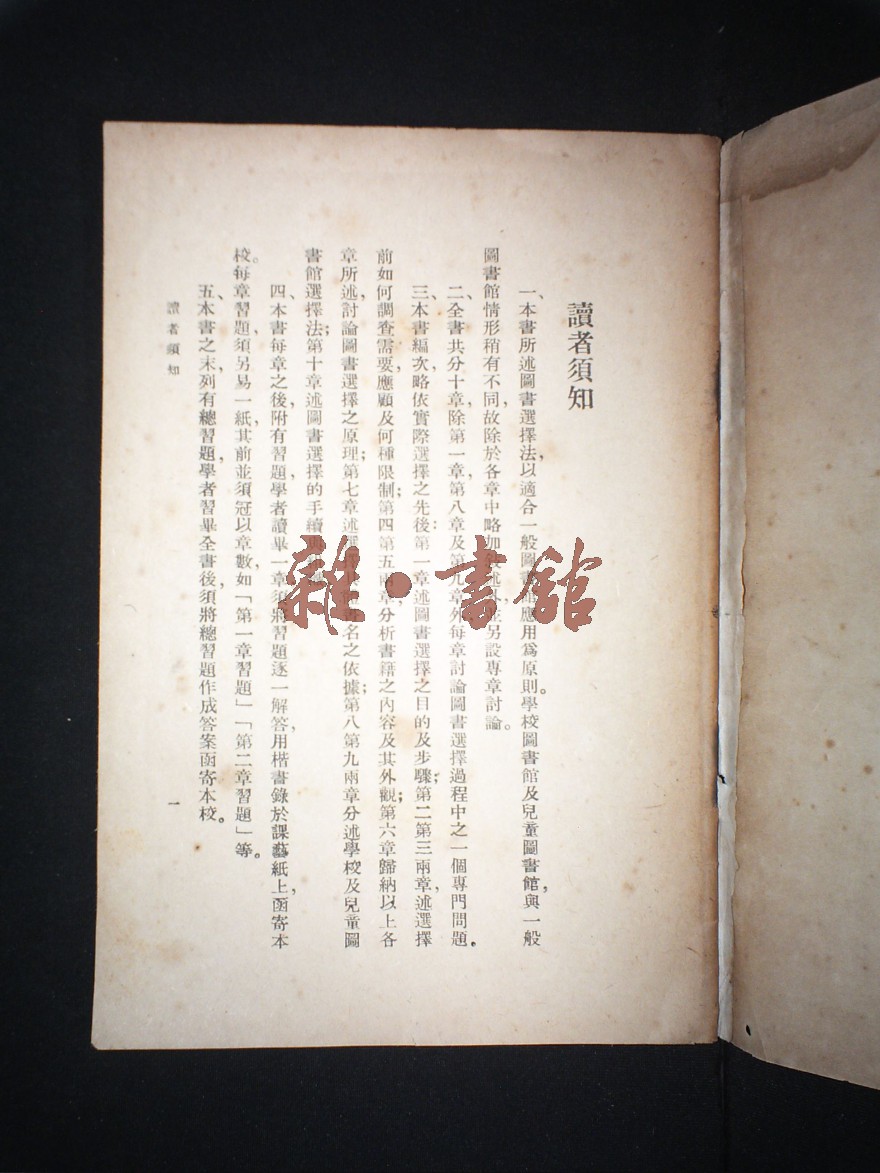 讀者須知
一、本書所述圖書選擇法,以適合一般圖書應用爲原則。學校圖書館及兒童圖書館,與一般
圖書館情形稍有不同,故除於各章中略加述外,另設專章討論。
二、全書共分十章,除第一章,第八章及第九章外,每章討論圖書選擇過程中之一個專門問題。
三、本書編次,略依實際選擇之先後:第一章述圖書選擇之目的及步驟;第二第三兩章,述選擇
前如何調查需要,應顧及何種限制;第四第五兩章,分析書籍之內容及其外觀;第六章歸納以上各
章所述,討論圖書選擇之原理;第七章述選書名之依據;第八第九兩章分述學校及兒童圖
書館選擇法;第十章述圖書選擇的手續
四、本書每章之後,附有習題,學者讀畢一章,須將習題逐一解答,用楷書錄於課藝紙上,函寄本
校。每章習題,須另易一紙,其前並須冠以章數,如「第一章習題」「第二章習題」等。
五、本書之末,列有總習題,學者習畢全書後,須將總習題作成答案,函寄本校。
讀者須知
一
雜·書館